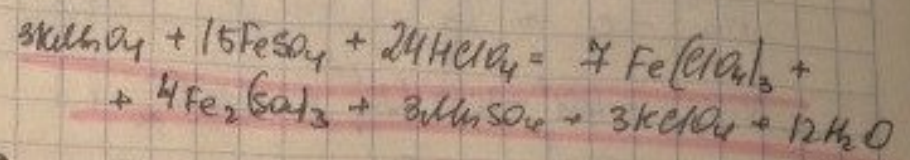 3KMnO₄ + 15FeSO₄ + 24HClO₄ = 7 Fe(ClO₄)₃ +
+ 4Fe₂(SO₄)₃ + 3MnSO₄ + 3KClO₄ + 12H₂O